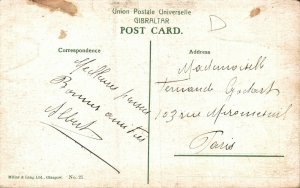 Union Postale Universelle
GIBRALTAR
POST CARD.
D
Correspondence
Address
Meilleures pensées
Bonnes amitiés
Albert
Mademoiselle
Fernande Godart
103 rue Miromesnil
Paris
Millar & Lang, Ltd., Glasgow. No. 25